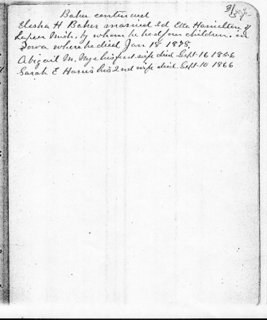 Baker continued
Elisha H Baker married 3d, Etta Hamilton of
Lapeer Mich. by whom he had four children, in
Iowa where he died Jan. 18 1898,
Abigail M. his first wife died Sept 16 1846
Sarah E Harris his 2nd wife died Sept 10 1866